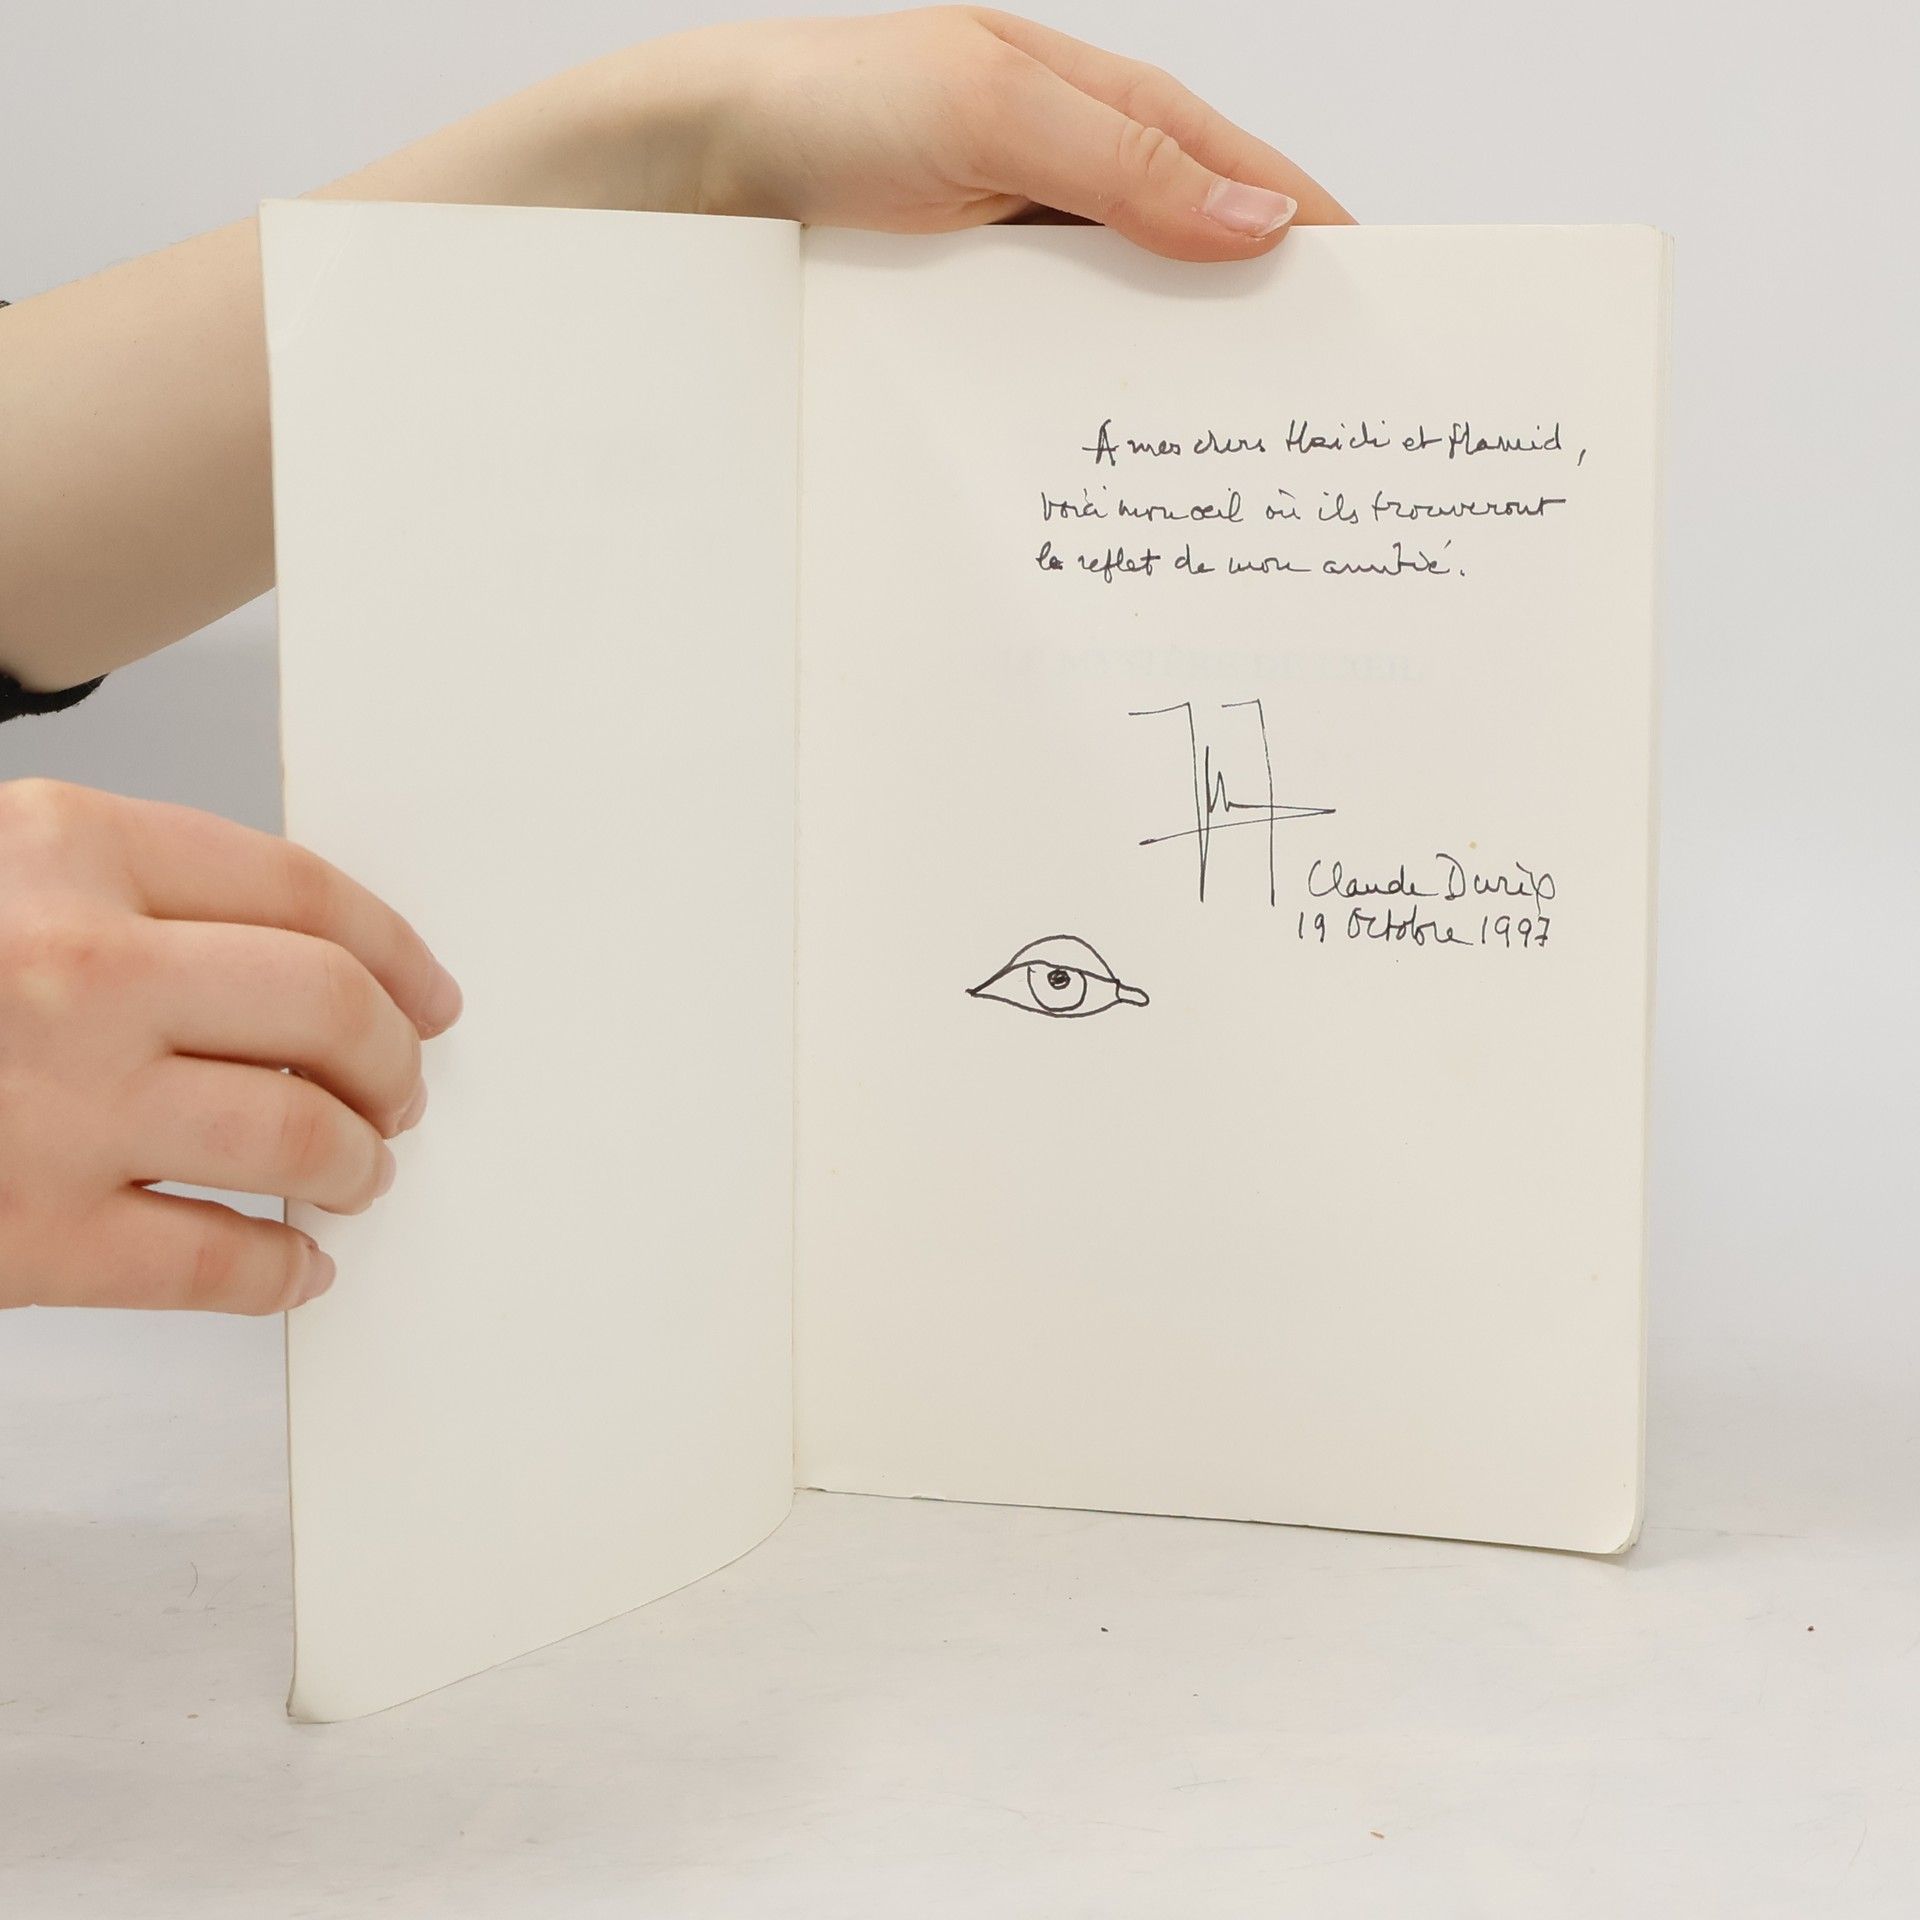 A mes chers Haidi et Hamid,
voici mon œil où ils trouveront
le reflet de mon amitié.
MYSTÈRE DE L'ŒIL
Claude Durix
19 Octobre 1997